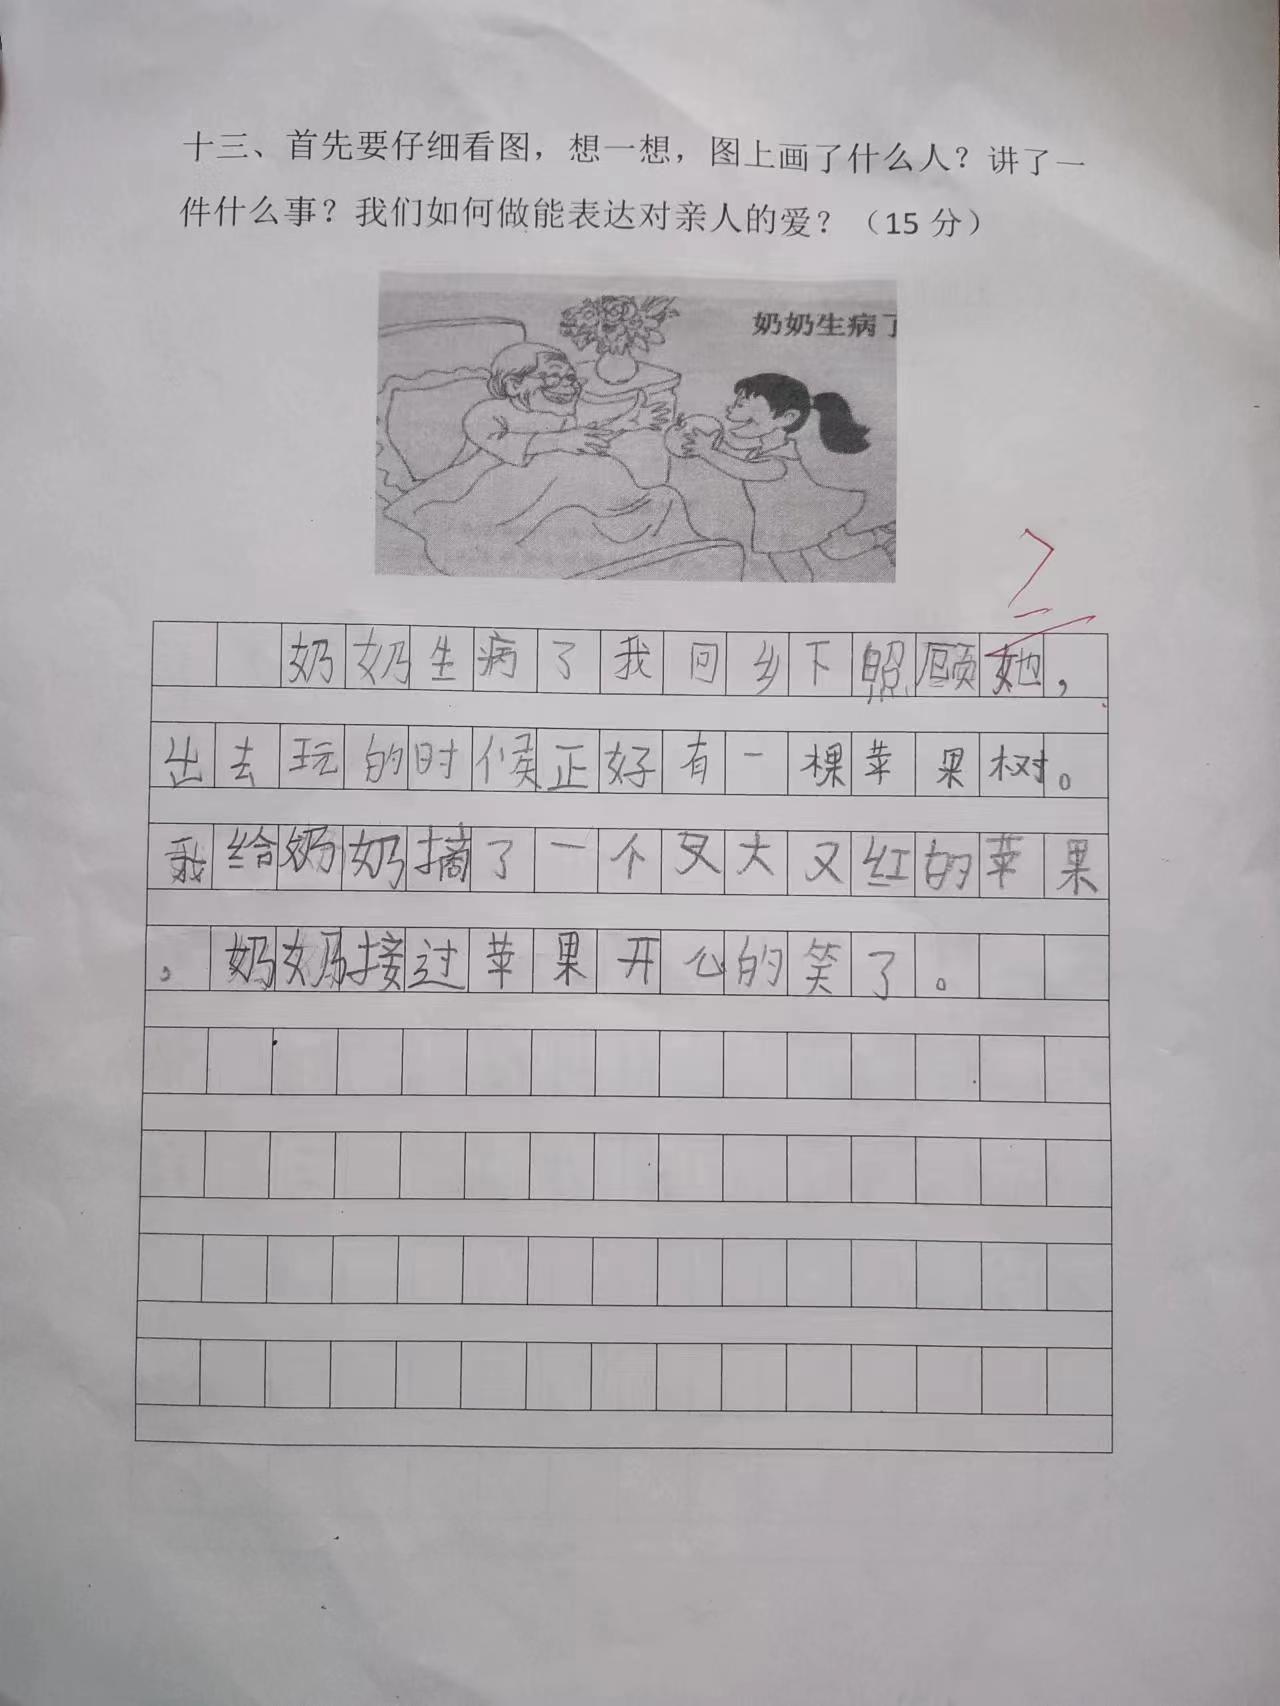 十三、首先要仔细看图，想一想，图上画了什么人？讲了一
件什么事？我们如何做能表达对亲人的爱？（15 分）
奶奶生病了
奶奶生病了我回乡下照顾她，
出去玩的时候正好有一棵苹果树。
我给奶奶摘了一个又大又红的苹果
。奶奶接过苹果开心的笑了。